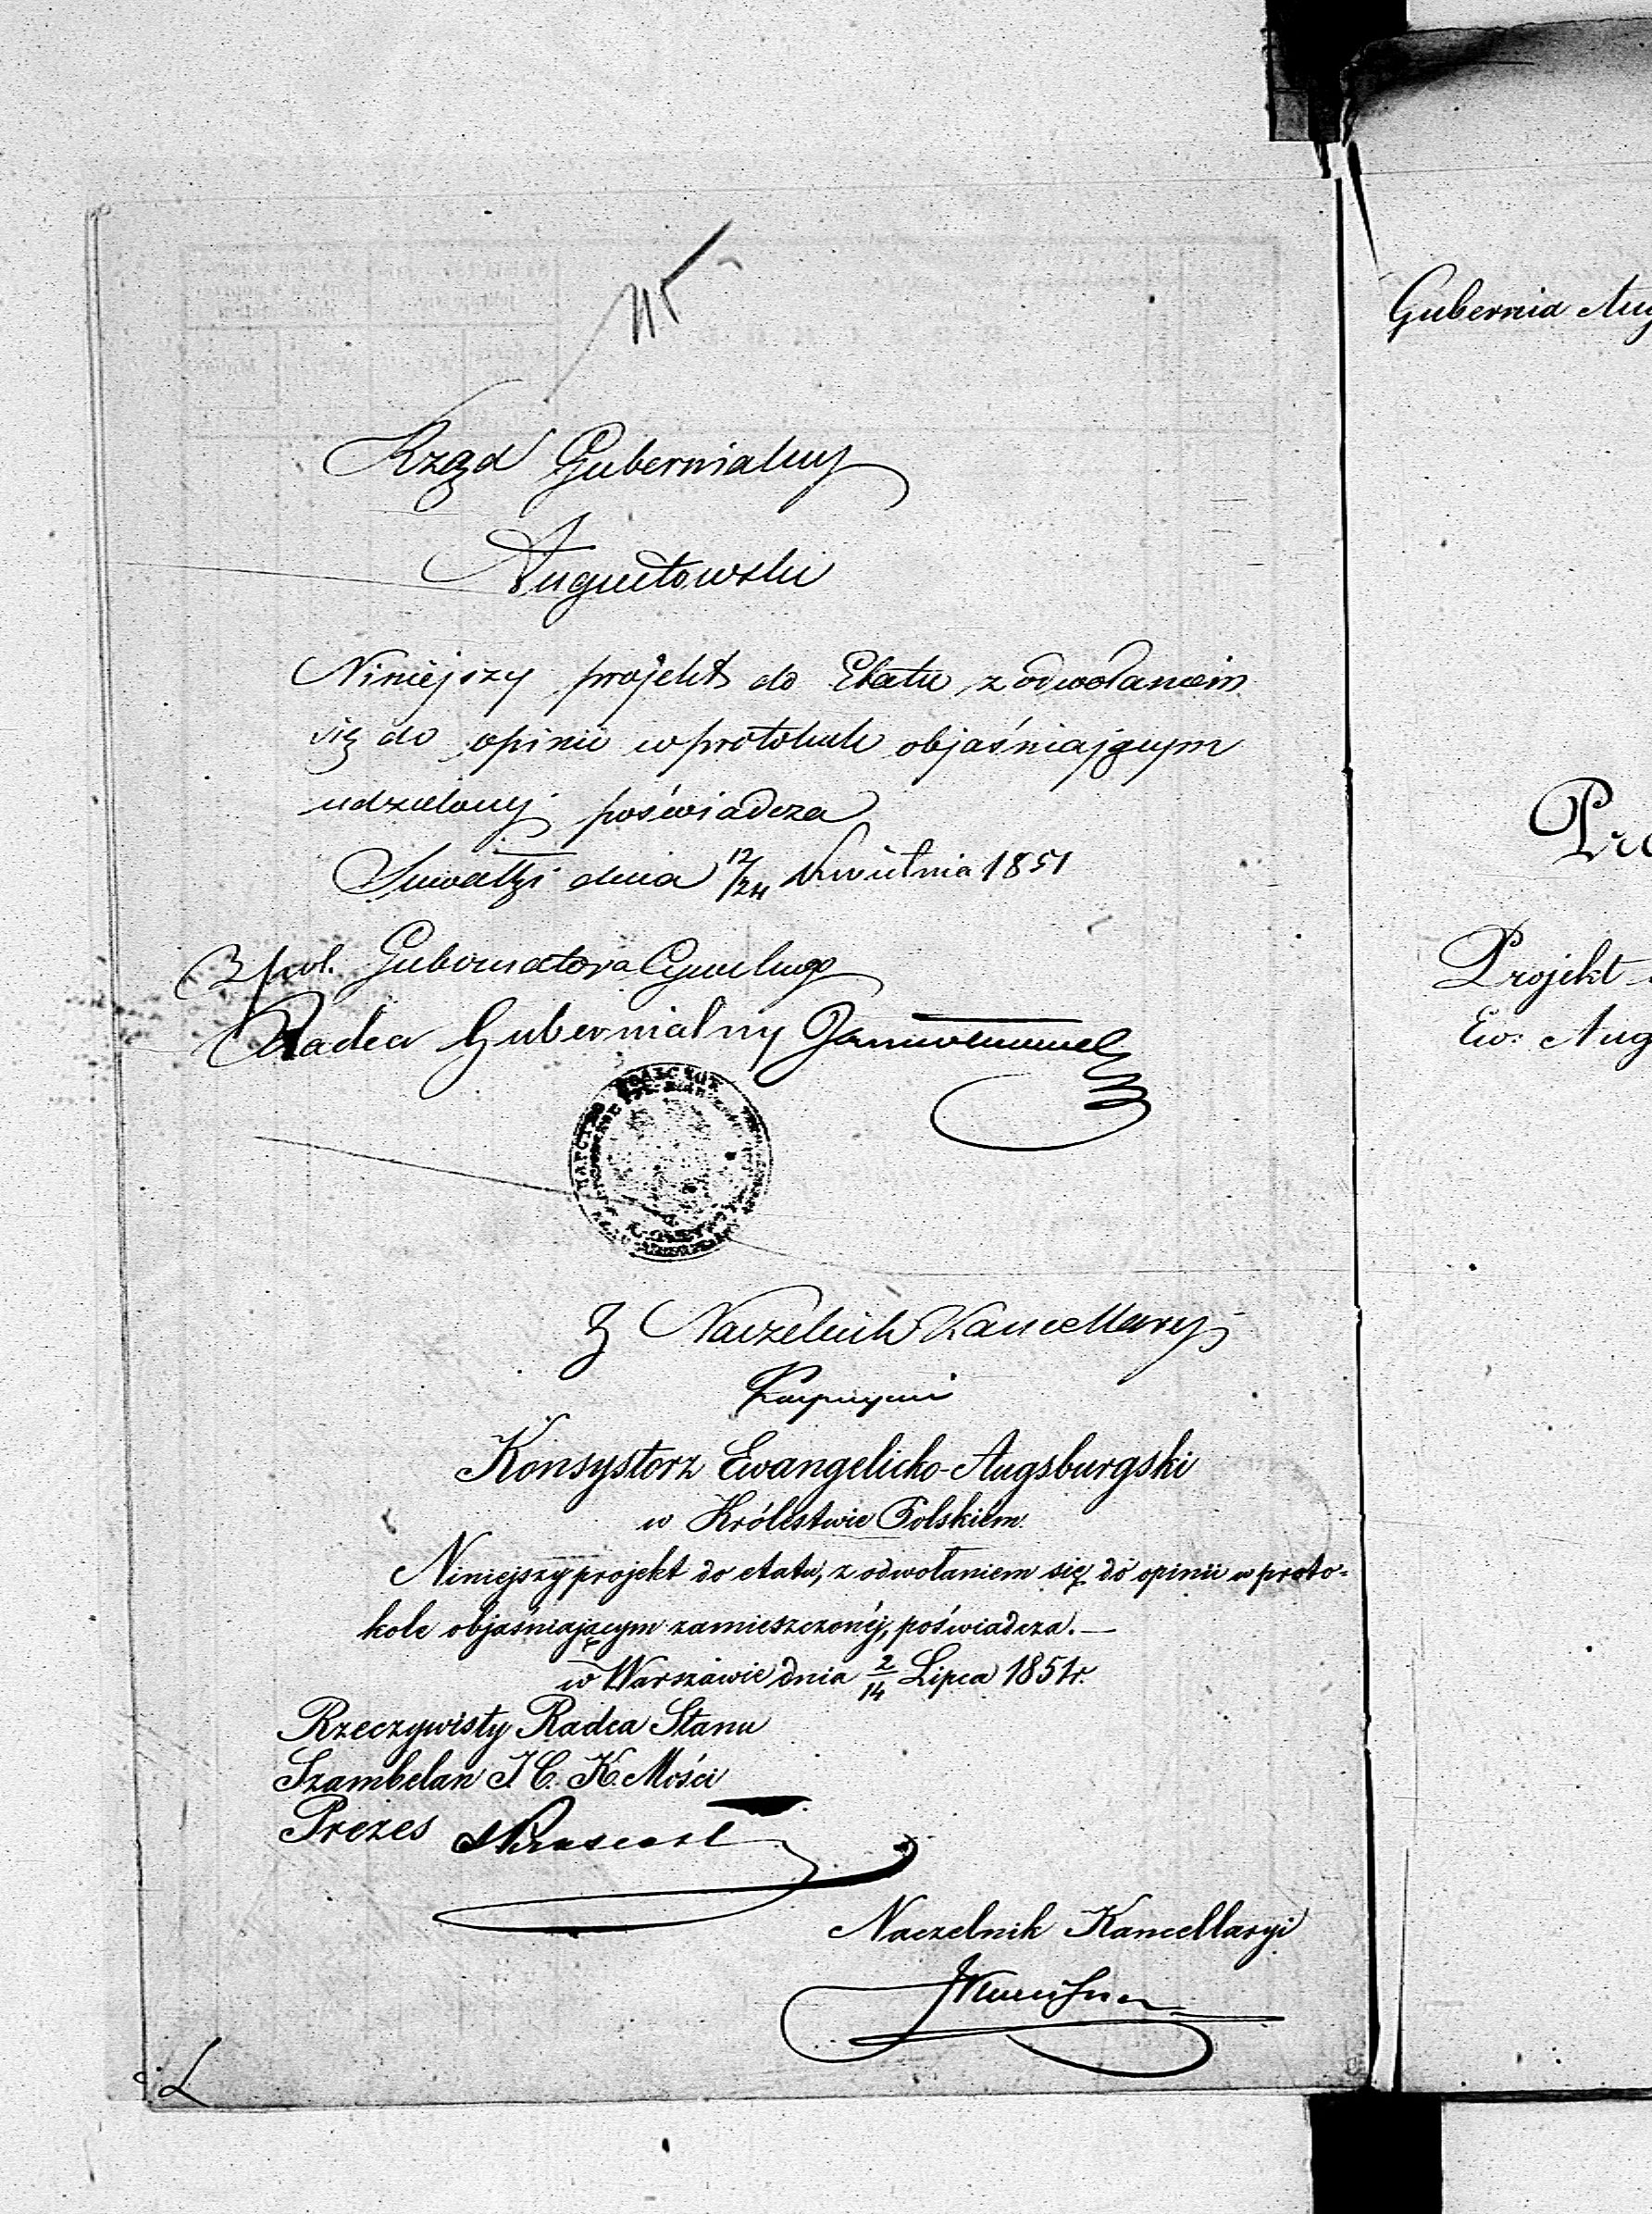 Rząd Gubernialny
Augustowski
Niniejszy projekt do Etatu z odwołaniem
się do opinii w protokule objaśniającym
udzielonej poświadcza
Suwałki dnia 12/24 Kwietnia 1851
Gubernatora Cywilnego
Radca Gubernialny
Naczelnik Kancellaryi
Konsystorz Ewangelicko-Augsburgski
w Królestwie Polskiem
Niniejszy projekt do etatu, z odwołaniem się do opinii w proto-
kole objaśniającym zamieszczonéj, poświadcza. —
w Warszawie dnia 2/14 Lipca 1851 r.
Rzeczywisty Radca Stanu
Szambelan J. C. K. Mości
Prezes
Naczelnik Kancellaryi
Gubernia Aug
Pro
Projekt
Ew. Aug